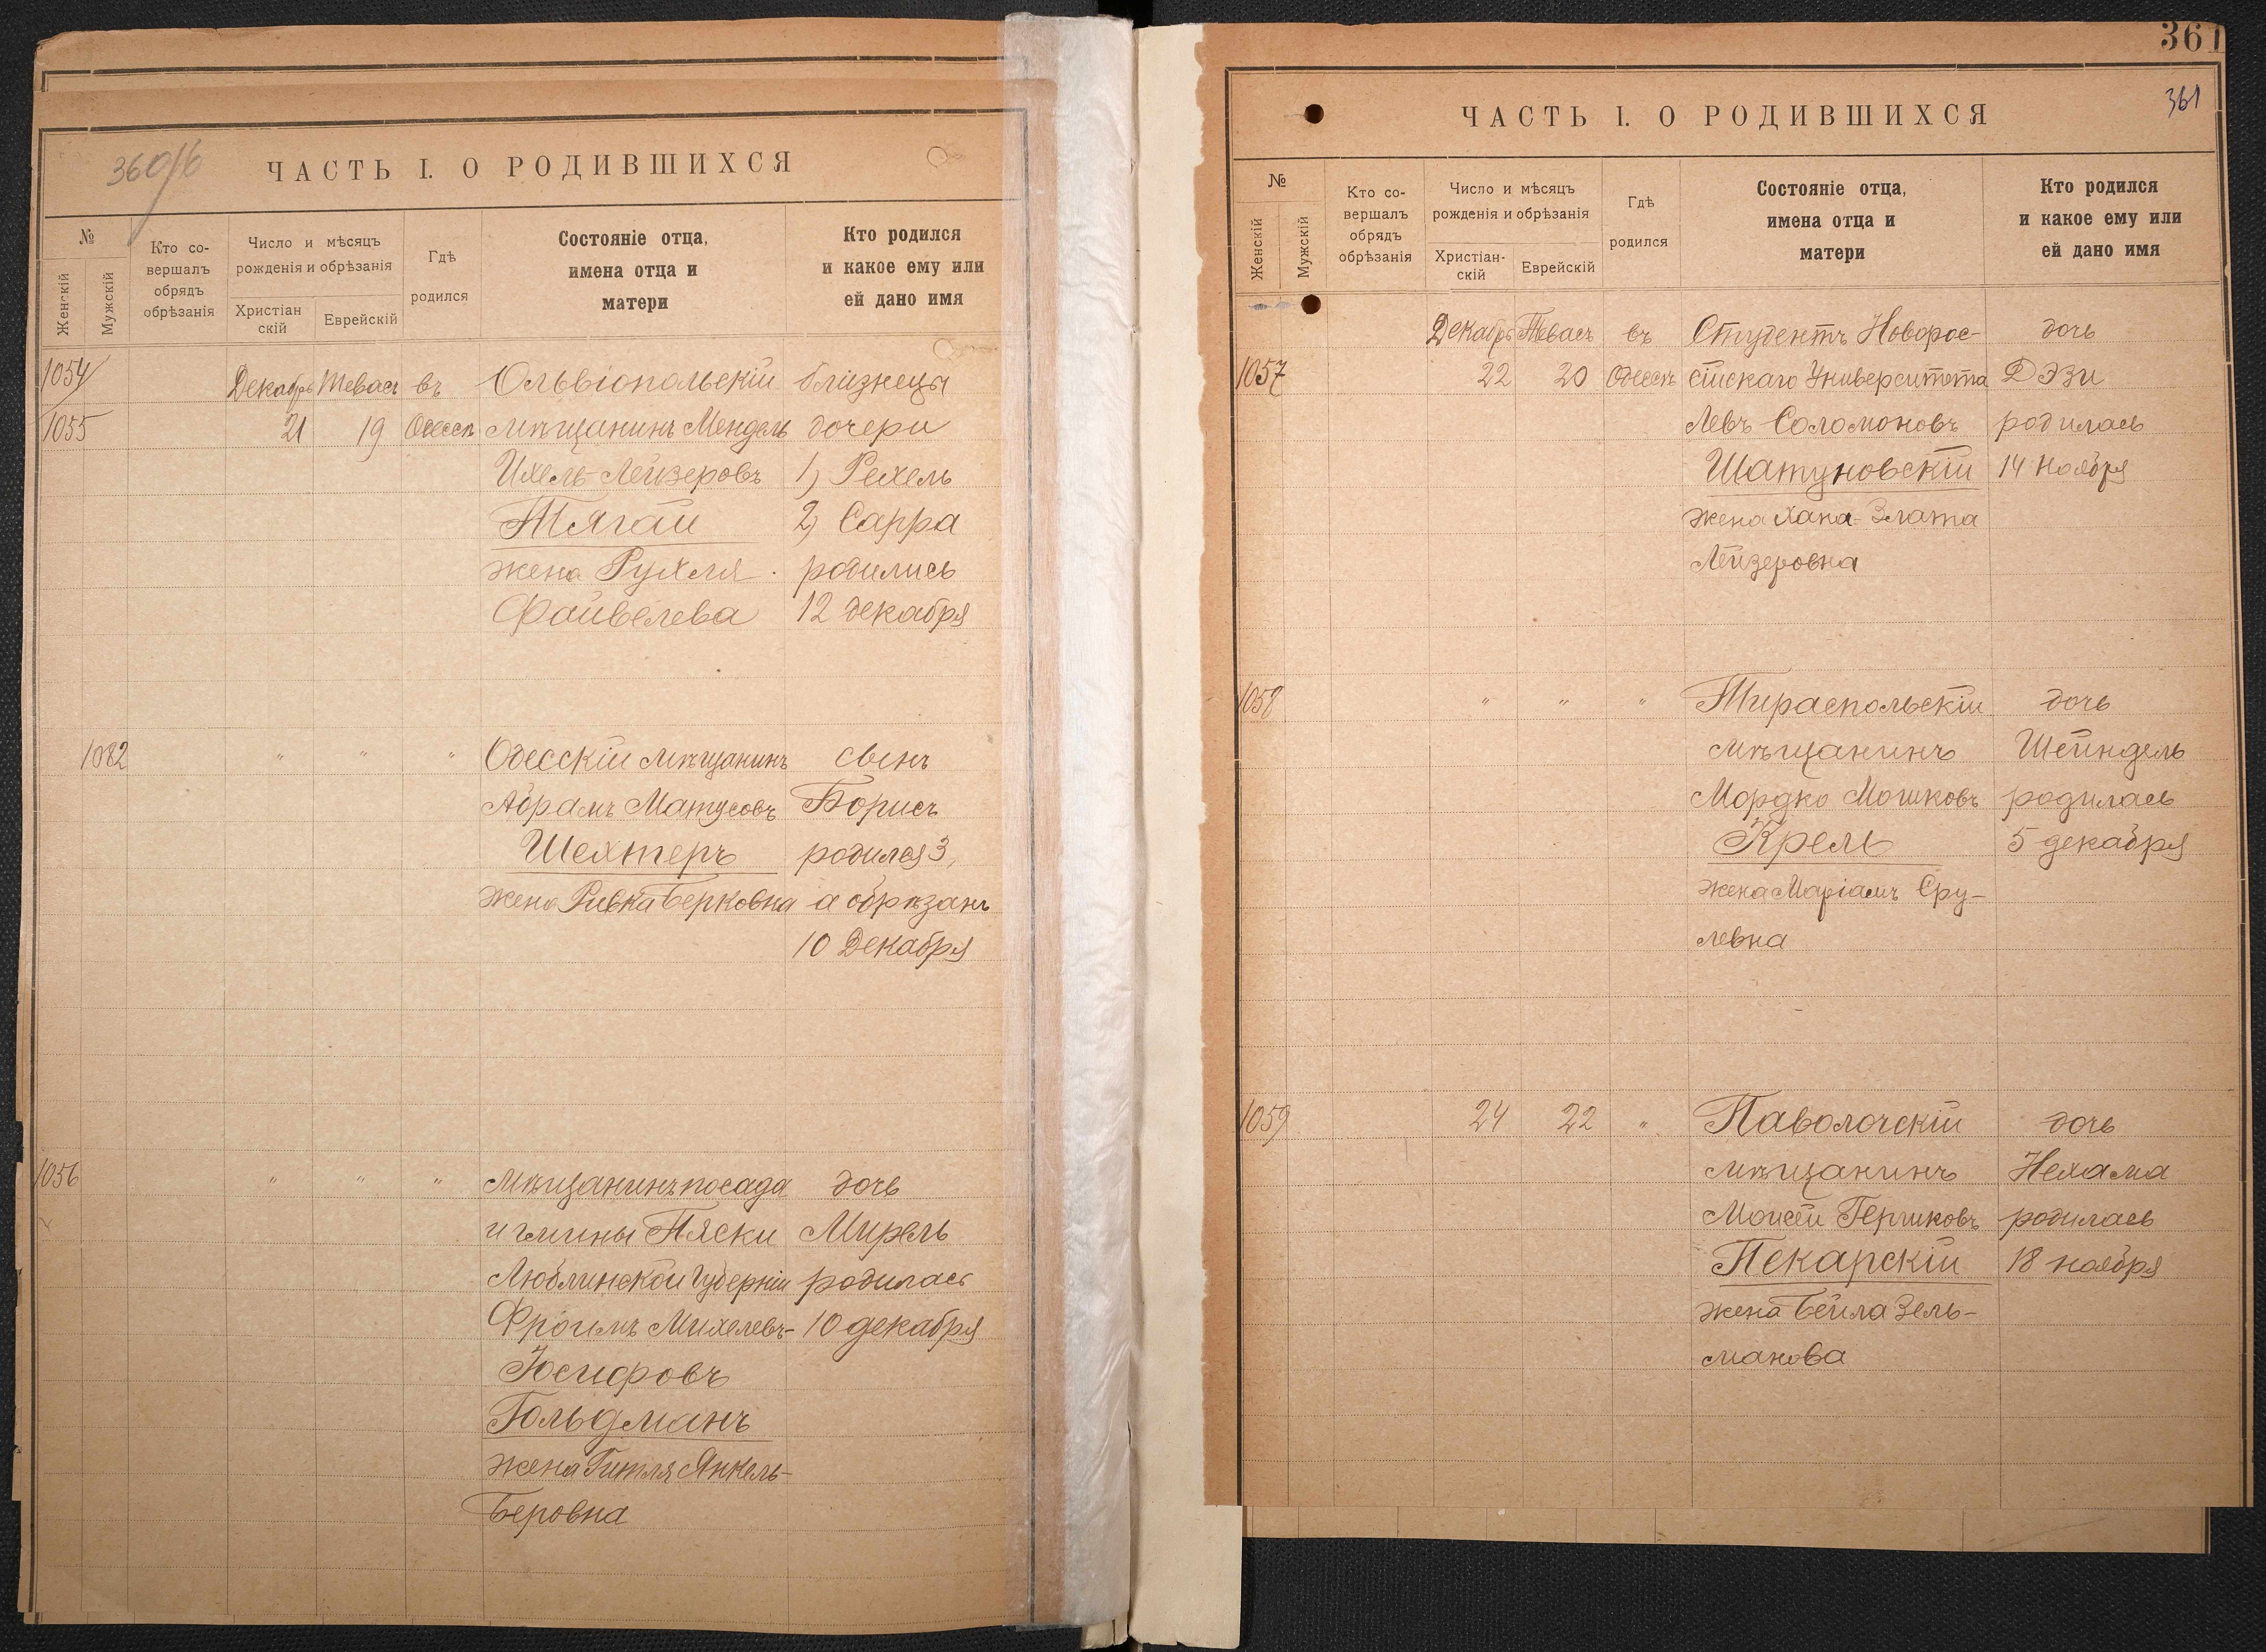 360/б
ЧАСТЬ I. О РОДИВШИХСЯ
№
Женскій
Мужскій
Кто со-
вершалъ
обрядъ
обрѣзанія
Число и мѣсяцъ
рожденія и обрѣзанія
Христіан
скій
Еврейскій
Гдѣ
родился
Состояніе отца,
имена отца и
матери
Кто родился
и какое ему или
ей дано имя
1054
Декабрь Тевасъ въ Ольвіопольскій близнецы
1055 21 19 Одессѣ мѣщанинъ Мендель дочери
Ихель-Лейзеровъ 1) Рехель
Тягай 2) Сарра
жена Рухля родились
Файвелева 12 декабря
1082 " " " Одесскій мѣщанинъ сынъ
Абрамъ Матусовъ Борисъ
Шехтеръ родился 3,
жена Ривка Берковна а обрѣзанъ
10 Декабря
1056 " " " Мѣщанинъ посада дочь
и гмины Пяски Мирель
Люблинской Губерніи родилась
Фроимъ Михелевъ- 10 декабря
Юсифовъ
Гольдманъ
жена Гитля Янкель-
Беровна
361
361
ЧАСТЬ I. О РОДИВШИХСЯ
№
Женскій
Мужскій
Кто со-
вершалъ
обрядъ
обрѣзанія
Число и мѣсяцъ
рожденія и обрѣзанія
Христіан-
скій
Еврейскій
Гдѣ
родился
Состояніе отца,
имена отца и
матери
Кто родился
и какое ему или
ей дано имя
Декабрь Тевасъ въ Студентъ Новорос- дочь
1057 22 20 Одессѣ сійскаго Университета Дэзи
Левъ Соломоновъ родилась
Шатуновскій 14 ноября
жена Хана-Злата
Лейзеровна
1058 " " " Тираспольскій дочь
мѣщанинъ Шейндель
Мордко Мошковъ родилась
Крель 5 декабря
жена Маріамъ Сру-
левна
1059 24 22 " Паволочскій дочь
мѣщанинъ Нехама
Моисей Гершковъ родилась
Пекарскій 18 ноября
жена Бейла Зель-
манова